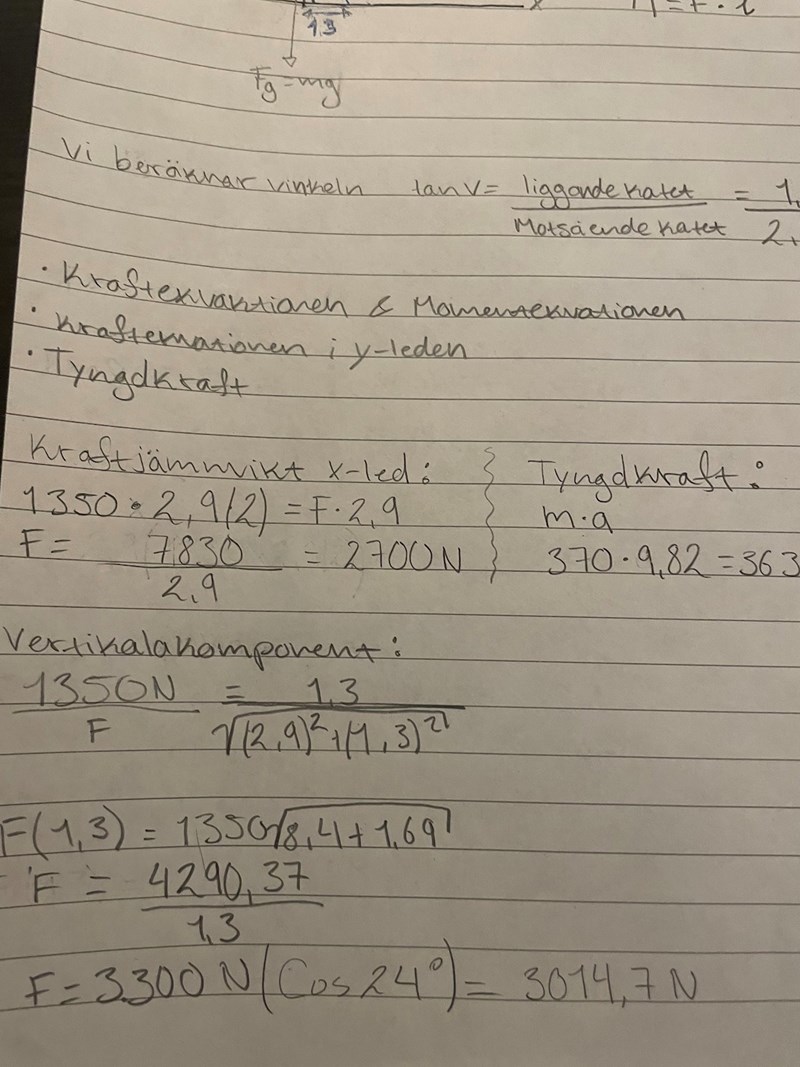 1,3 x
Fg=mg
Vi beräknar vinkeln tan V = liggande katet = 1,
Motsående katet 2,
· Kraftekvationen & Momentekvationen
· Kraftekvationen i y-leden
· Tyngdkraft
Kraftjämnvikt x-led: Tyngdkraft:
1350 · 2,9(2) = F · 2,9 m·a
F = 7830 = 2700N 370 · 9,82 = 363
2,9
Vertikalakomponent:
1350N = 1,3
F √(2,9)²+(1,3)²
F(1,3) = 1350√8,4+1,69
F = 4290,37
1,3
F = 3300 N (Cos 24°) = 3014,7 N